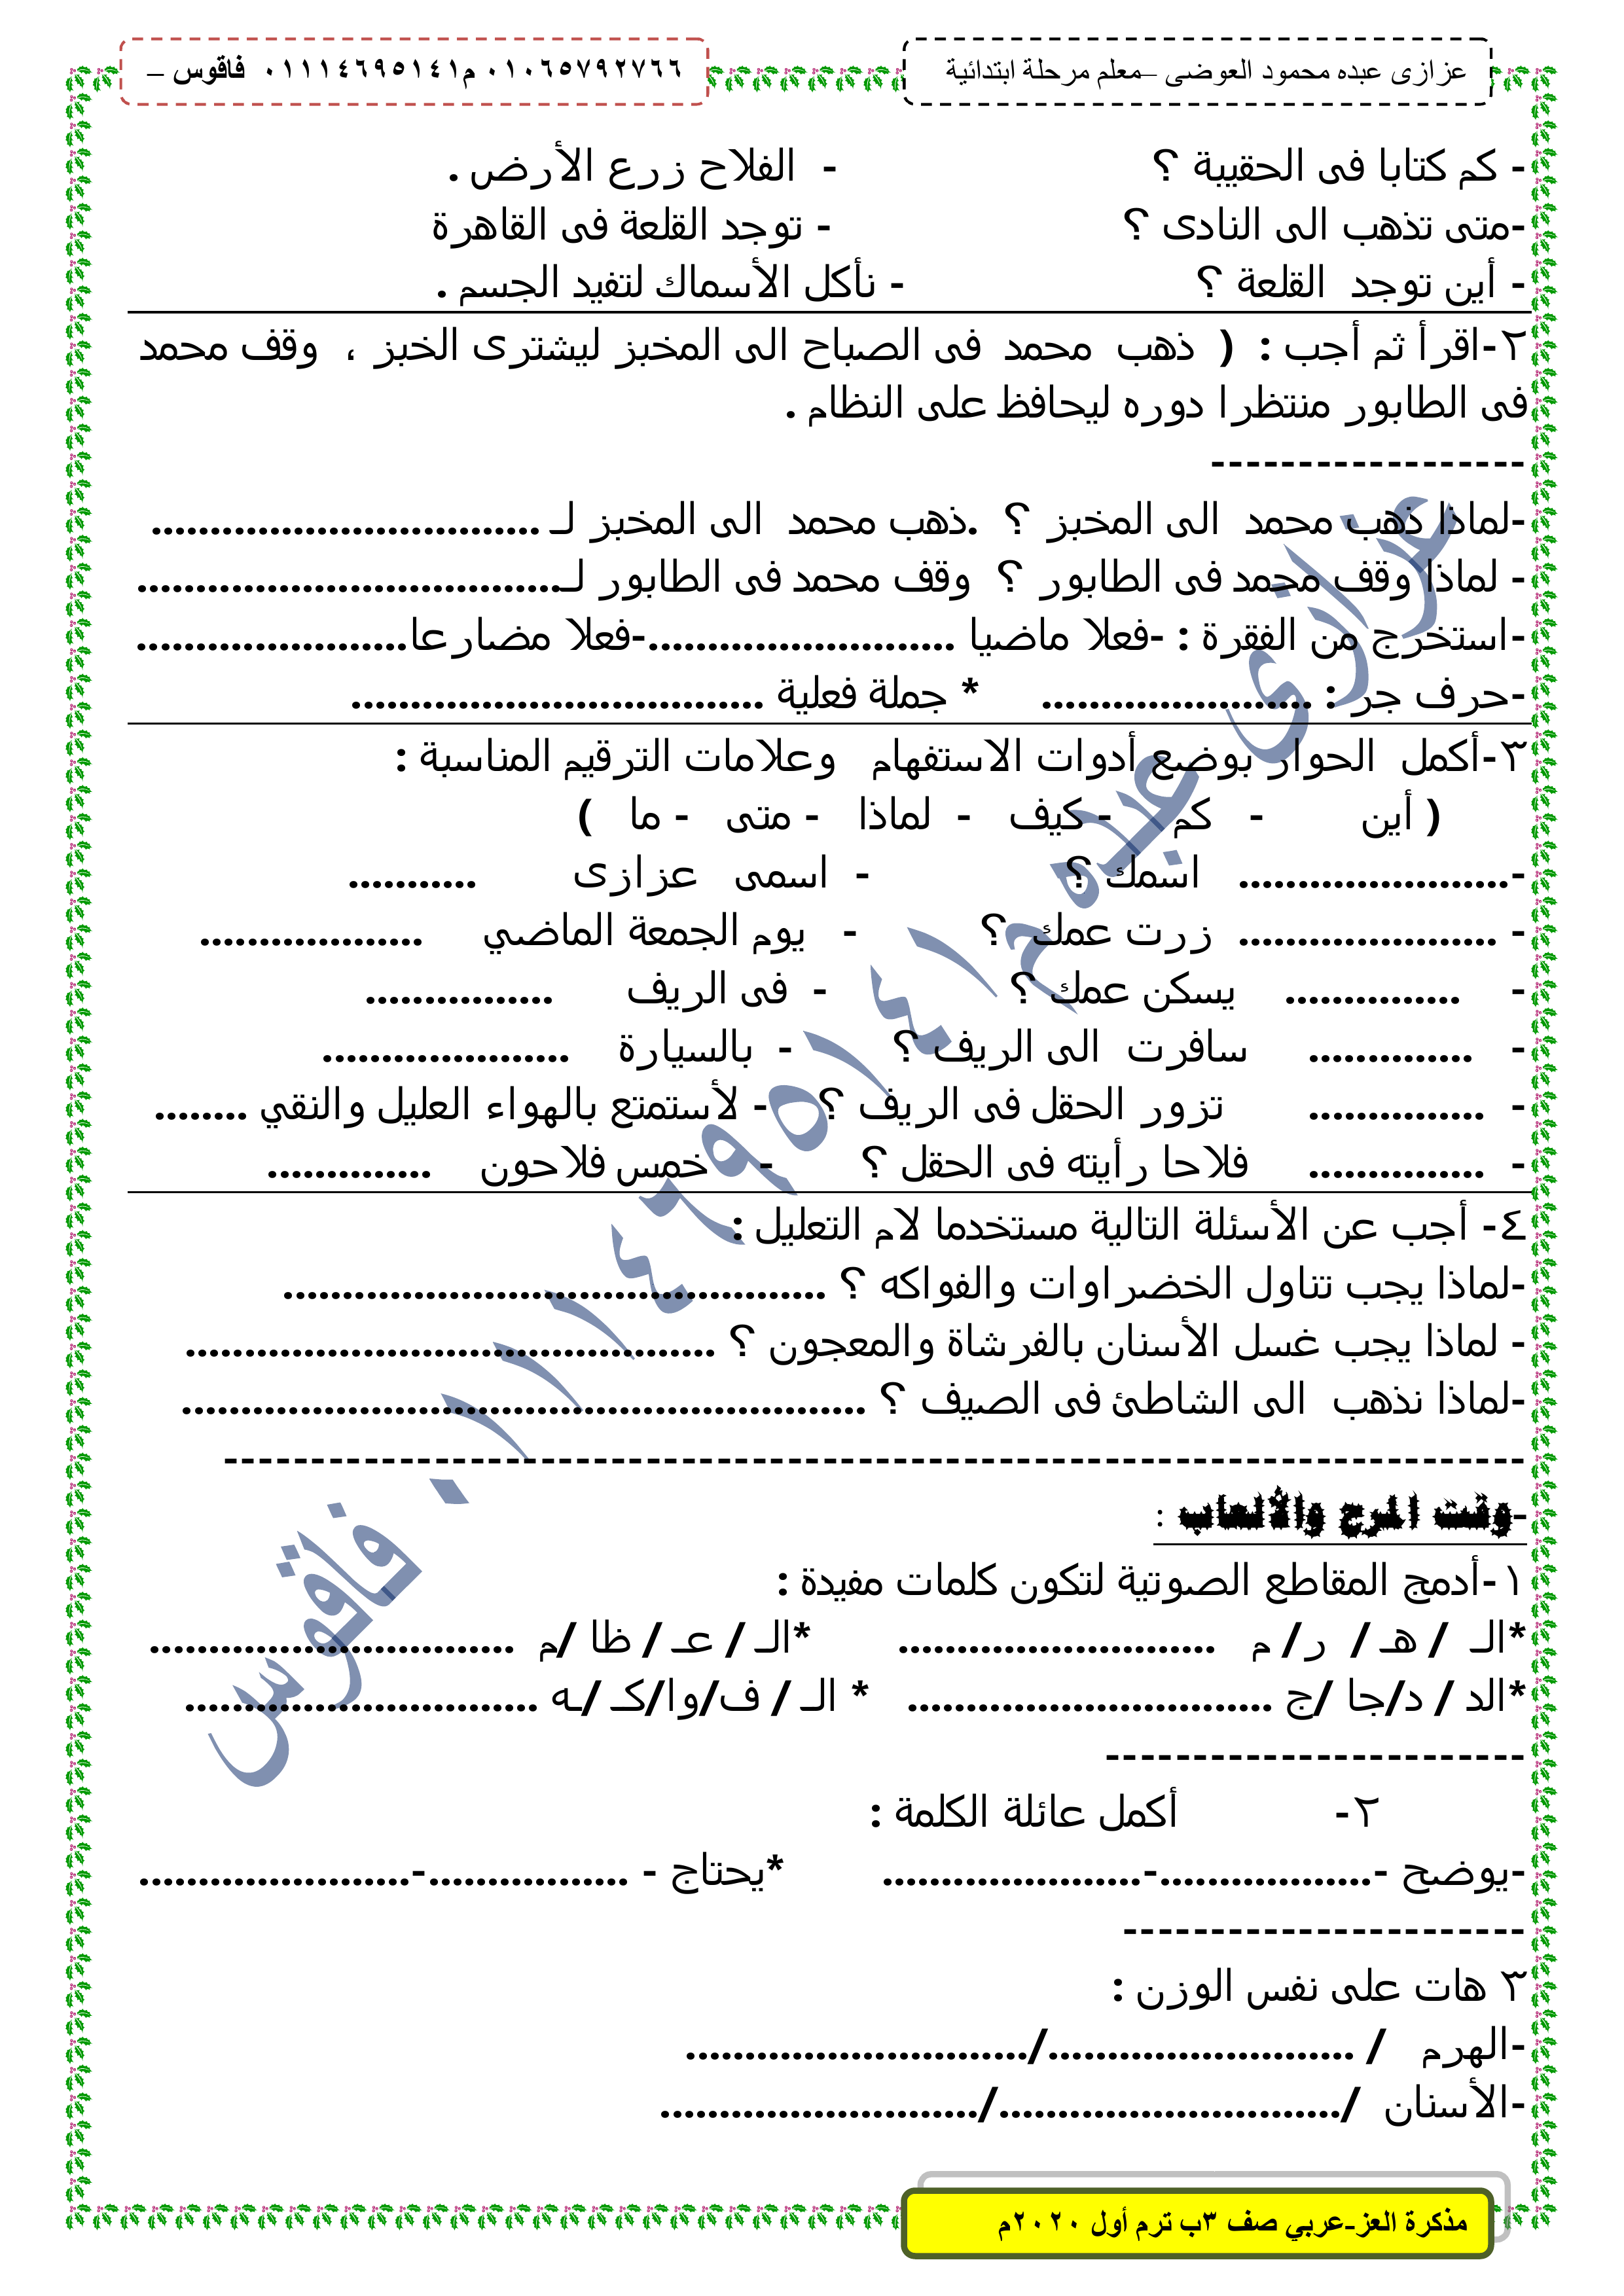 عزازى عبده محمود العوضى –معلم مرحلة ابتدائية
٠١٠٦٥٧٩٢٧٦٦ م٠١١١٤٦٩٥١٤١ فاقوس –
- كم كتابا فى الحقيبة ؟ - الفلاح زرع الأرض .
-متى تذهب الى النادى ؟ - توجد القلعة فى القاهرة
- أين توجد القلعة ؟ - نأكل الأسماك لتفيد الجسم .
٢-اقرأ ثم أجب : ( ذهب محمد فى الصباح الى المخبز ليشترى الخبز ، وقف محمد
فى الطابور منتظرا دوره ليحافظ على النظام .
------------------
-لماذا ذهب محمد الى المخبز ؟ .ذهب محمد الى المخبز لـ .................................
- لماذا وقف محمد فى الطابور ؟ وقف محمد فى الطابور لـ....................................
-استخرج من الفقرة : -فعلا ماضيا ..........................-فعلا مضارعا.......................
-حرف جر : ....................... * جملة فعلية ...................................
٣-أكمل الحوار بوضع أدوات الاستفهام وعلامات الترقيم المناسبة :
( أين - كم - كيف - لماذا - متى - ما )
-....................... اسمك ؟ - اسمى عزازى ...........
- ...................... زرت عمك ؟ - يوم الجمعة الماضي ...................
- ............... يسكن عمك ؟ - فى الريف ................
- .............. سافرت الى الريف ؟ - بالسيارة .....................
- ............... تزور الحقل فى الريف ؟ - لأستمتع بالهواء العليل والنقي ........
- ............... فلاحا رأيته فى الحقل ؟ - خمس فلاحون ..............
٤- أجب عن الأسئلة التالية مستخدما لام التعليل :
-لماذا يجب تتاول الخضراوات والفواكه ؟ ..............................................
- لماذا يجب غسل الأسنان بالفرشاة والمعجون ؟ .............................................
-لماذا نذهب الى الشاطئ فى الصيف ؟ ..........................................................
--------------------------------------------------------------------------
-وقت المرح والألعاب :
١-أدمج المقاطع الصوتية لتكون كلمات مفيدة :
*الـ / هـ / ر/ م ........................... *الـ / عـ / ظا /م ...............................
*الد / د/جا /ج ............................... * الـ / ف/وا/كـ /ـه ..............................
------------------------
٢- أكمل عائلة الكلمة :
-يوضح -..................-...................... *يحتاج - .................-.......................
-----------------------
٣ هات على نفس الوزن :
-الهرم / ..........................‏/.............................
-الأسنان /............................./...........................
عزازى عبده م٠١١١٤٦٩٥١٤١ فاقوس
مذكرة العز-عربي صف ٣ب ترم أول ٢٠٢٠م